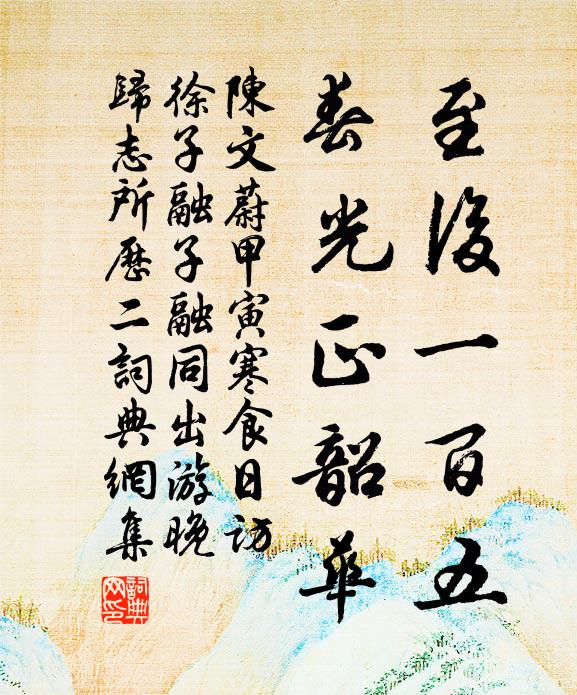 至後一百五
春光正韶華
陳文蔚甲寅寒食日訪
徐子融子融同出游晚
歸志所歷二詞典網集
詞典網印